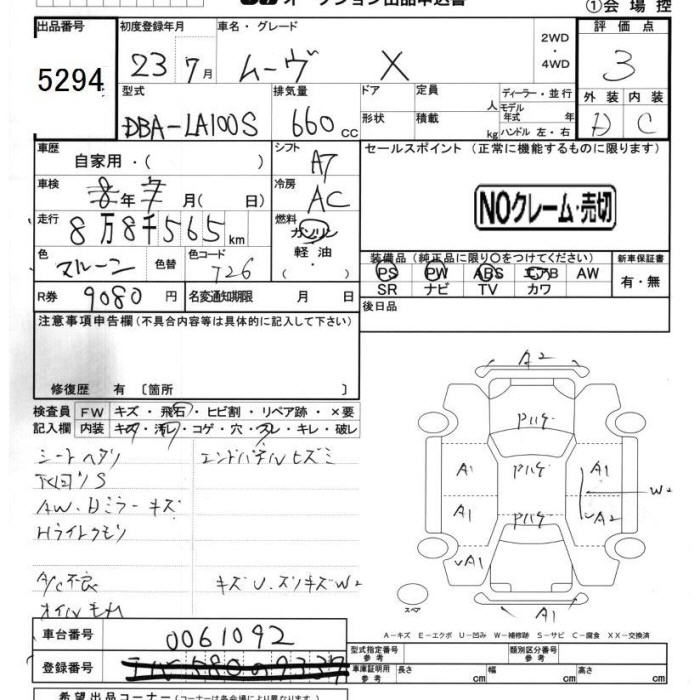 オークション出品申込書
①会場控
出品番号
5294
初度登録年月
23 7月
車名・グレード
ムーヴ X
2WD
・
4WD
評価点
3
型式
DBA-LA100S
排気量
660 cc
ドア
形状
定員
人
積載
kg
ディーラー・並行
モデル年式 年
ハンドル 左・右
外装 内装
D C
車歴
自家用・( )
シフト
A7
セールスポイント(正常に機能するものに限ります)
NOクレーム・売切
車検
8年7月( 日)
冷房
AC
走行
8万8千565km
燃料
ガソリン
軽油
( ・ )
色
マルーン
色替
色コード
726
装備品(純正品に限り〇をつけてください)
PS PW ABS エアB AW
SR ナビ TV カワ
新車保証書
有・無
R券 9080円
名変通知期限 月 日
後日品
注意事項申告欄(不具合内容等は具体的に記入して下さい)
修復歴 有 〔箇所 〕
検査員 FW キズ・飛石・ヒビ割・リペア跡・×要
記入欄 内装 キズ・汚レ・コゲ・穴・スレ・キレ・破レ
シートヘタリ
エンドパネルヒズミ
下回りS
AW・Dミラーキズ
Hライトクモリ
A/C不良
キズU.スリキズW2
オイルモレ
A2
Pハゲ
A1 Pハゲ A1
W2
A1 Pハゲ A2
A1
A1
スペア
A-キズ E-エクボ U-凹み W-補修跡 S-サビ C-腐食 XX-交換済
車台番号
0061092
登録番号
型式指定番号
参考
類別区分番号
参考
車庫証明用
参考
長さ cm
幅 cm
高さ cm
希望出品コーナー(コーナーは各会場により異なります。)